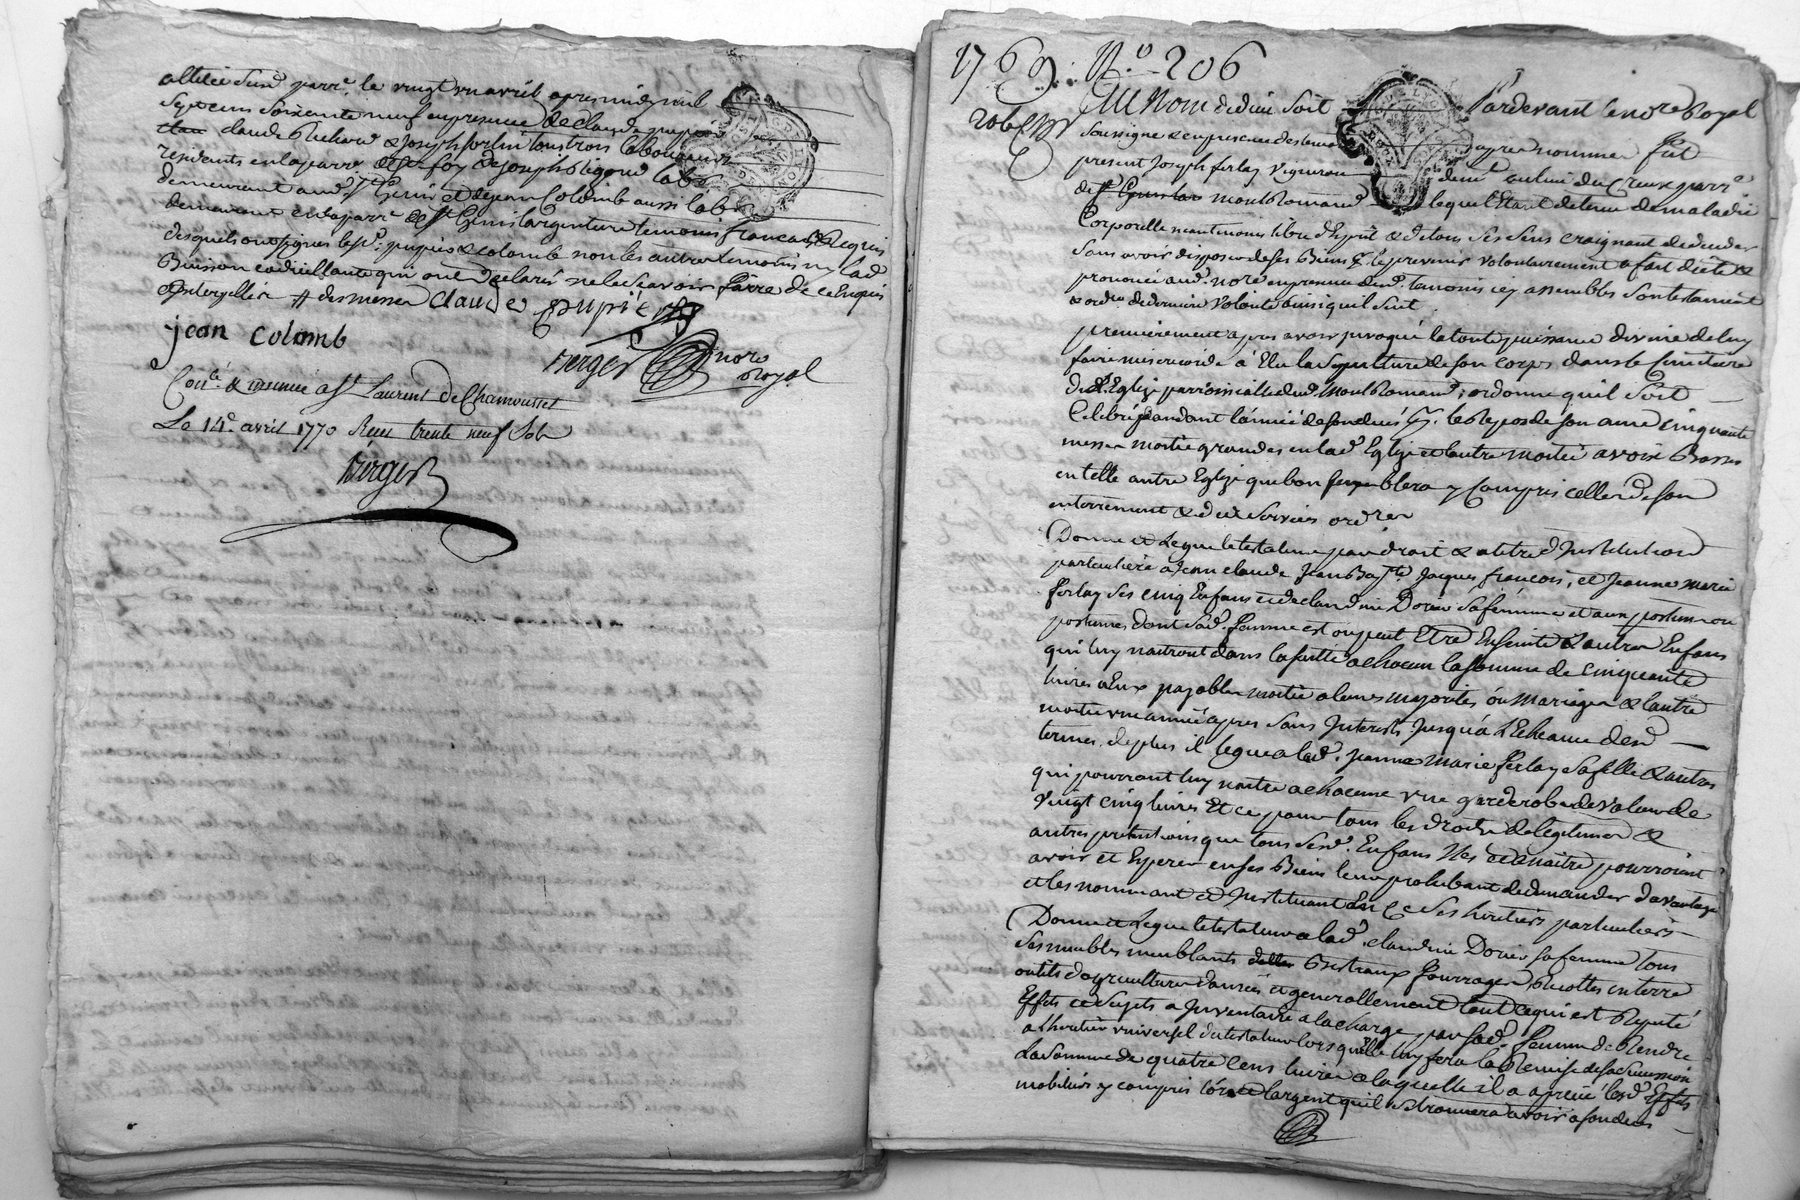 le vingt un avril apres midy mil
sept cens soixante neuf en presence de Claude pupier
Claude Richard & Joseph tous trois laboureurs
residents en laparr.e de Ste foy de Joseph labr
demeurant aud. St Genis et de jean Colomb aussi labr
demeurant en laparr.e de St Genis largentiere temoins francais Requis
desquels ont signés les srs. pupier & colomb non les autres temoins ny lad.
Buisson qui ont declarés ne le scavoir faire de ce Enquis
& Interpellés # des messes Claude pupier
jean colomb
Berger nore Royal
Conlé & insinué a St Laurent De Chamousset
Le 14e avril 1770 Recu trente neuf sols
Berger
1769. N.o 206
206
Au Nom de dieu soit Pardevant le nore Royal
soussigne & en presence des temoins apres nommes fut
present Joseph ferlay vigneron demt au lieu du Creux parr.e
de montRomand lequel Etant detenu de maladie
Corporelle neantmoins libre d'Esprit & de tous ses sens craignant de deceder
sans avoir disposé de ses Biens & le prevenir volontairement a fait dicté &
prononcé aud. nore en presence desd. temoins icy assemblés son testament
& ordre de derniere volonté ainsi quil suit
premierement apres avoir invoqué la toute puissance divine de luy
faire misericorde à Elu la sepulture de son corps dans le Cimetiere
de l'Eglize parroissialle dud. MontRomand, ordonne quil soit
Celebré pendant l'année de son deces & le Repos de son ame cinquante
messes moitié grandes en lad. Eglize et l'autre moitié a voix Basses
en telle autre Eglize que bon semblera y Compris celles de son
enterrement & des services ordres
Donne et Legue le testateur par droit & a titre d'Institution
particuliere a Jean claude, Jean Bapte. Jacques, francois, et Jeanne marie
ferlay ses cinq Enfans et de claudine Dorier sa femme et aux postume ou
postumes dont sad. femme est ou peut Etre Enseinte & autres Enfans
qui luy naitront dans la suitte a chacun la somme de cinquante
livres a Eux payables moitié a leurs majorités ou Mariages & l'autre
moitié une année apres sans Interets jusqu'à L'Echeance desd.
termes. de plus il legue a lad. Jeanne Marie ferlay sa fille & autres
qui pourront luy naitre a chacune une garderobe de valeur de
vingt cinq livres Et ce pour tous les droits de legitimes &
autres pretentions que tous sesd. Enfans Nés et a naitre pourroient
avoir et Esperer en ses Biens leur prohibant de demander davantage
et les nommant et Instituant En Ce ses heritiers particuliers
Donne et Legue le testateur a lad. claudine Dorier sa femme tous
ses meubles meublants Bestiaux fourrages, Recoltes en terre
outils d'agriculture danrées et generallement tout ce qui est Reputé
Effets et sujets a Inventaire a la charge par sad. femme de Rendre
a l'heritier universel du testateur lors quelle luy fera la Remise de sa succession
la somme de quatre cens livres a laquelle il a aprecié lesd. Effets
mobiliers y compris l'or et l'argent quil se trouvera avoir a son deces